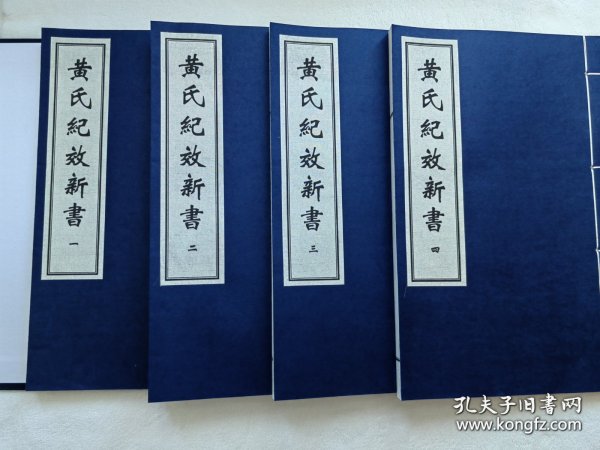 黄氏紀效新書 一
黄氏紀效新書 二
黄氏紀效新書 三
黄氏紀效新書 四
孔夫子旧書网
www.kongfz.com